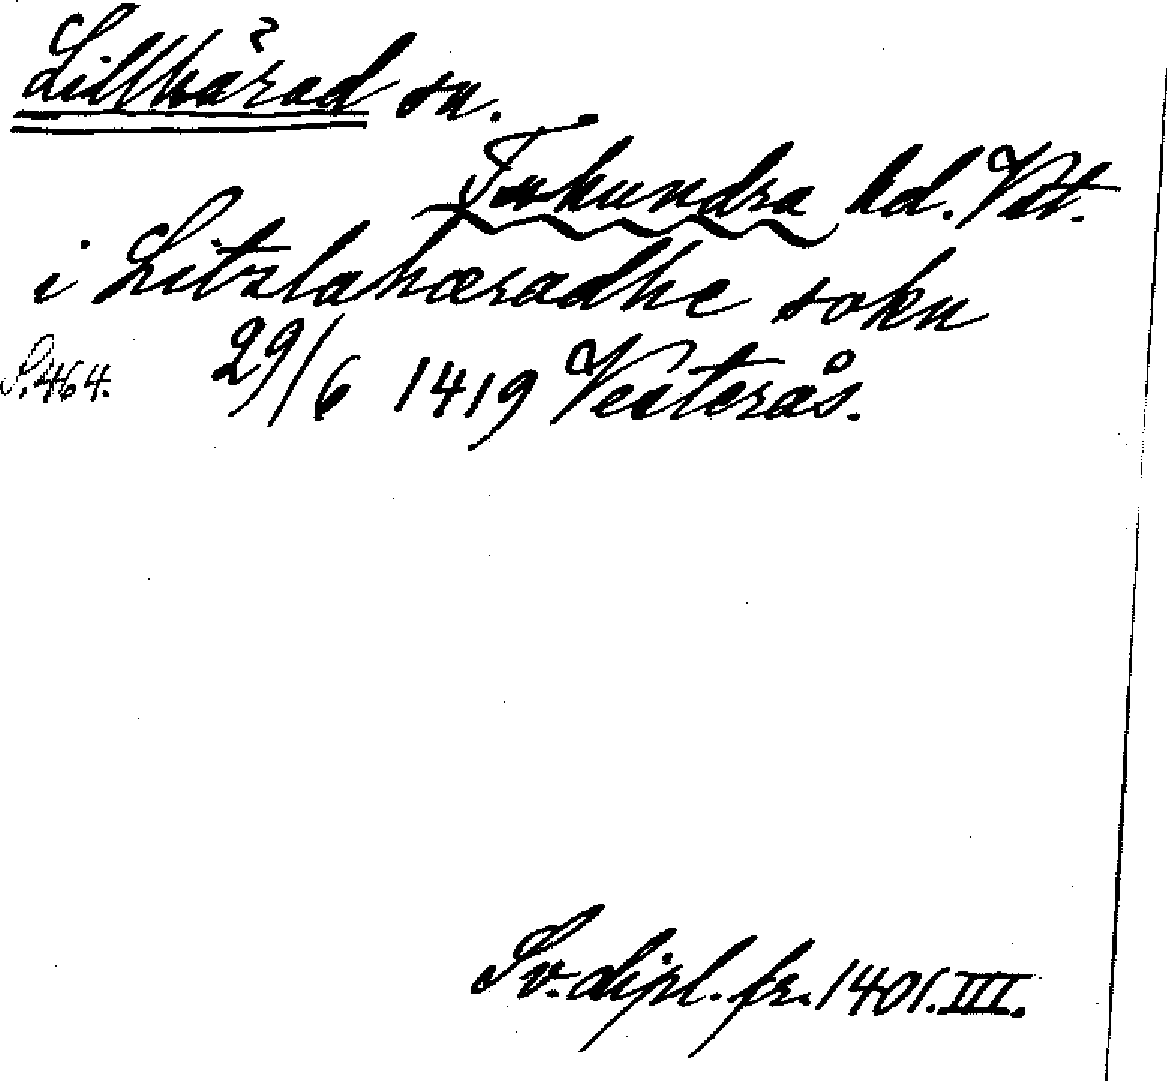 Lillhärad sn.
Tuhundra hd. Vstm.
i Litzlahæradhe sokn
S. 464. 29/6 1419 Vesterås.
Sv. dipl. fr. 1401. III.